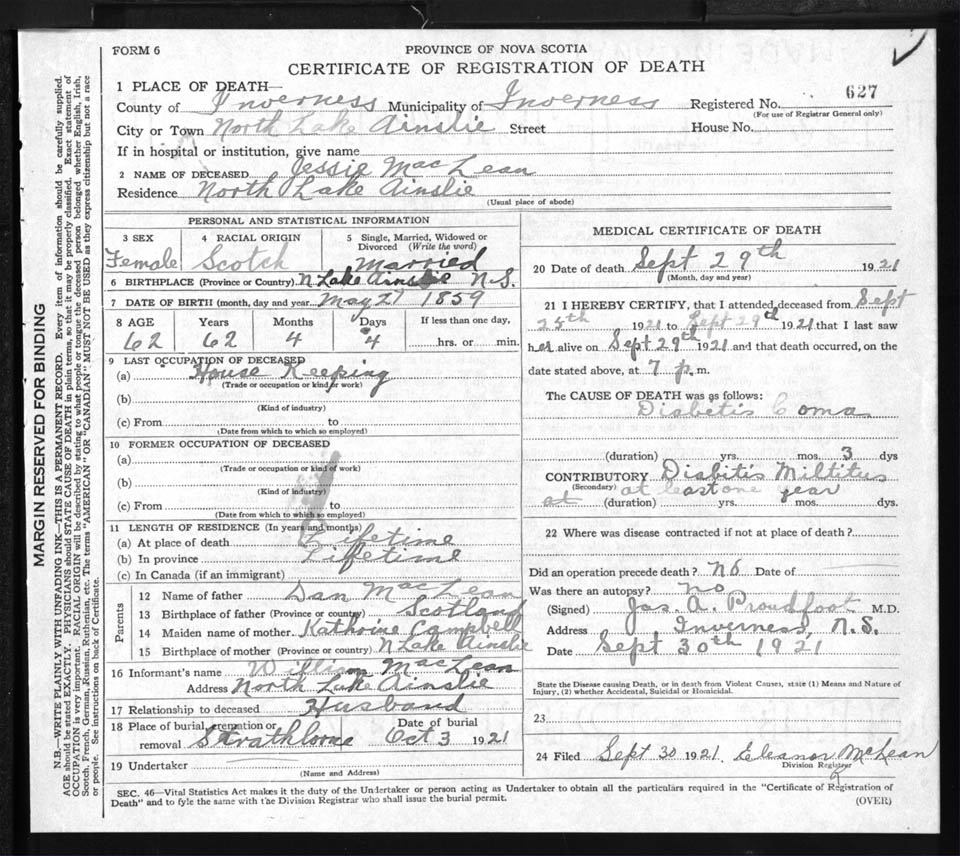 FORM 6
PROVINCE OF NOVA SCOTIA
CERTIFICATE OF REGISTRATION OF DEATH
1 PLACE OF DEATH—
County of Inverness Municipality of Inverness Registered No. 627
(For use of Registrar General only)
City or Town North Lake Ainslie Street House No.
If in hospital or institution, give name
2 NAME OF DECEASED Jessie MacLean
Residence North Lake Ainslie
(Usual place of abode)
PERSONAL AND STATISTICAL INFORMATION
3 SEX 4 RACIAL ORIGIN 5 Single, Married, Widowed or Divorced (Write the word)
Female Scotch Married
6 BIRTHPLACE (Province or Country) N Lake Ainslie N.S.
7 DATE OF BIRTH (month, day and year) May 27 1859
8 AGE Years Months Days If less than one day,
62 62 4 4 hrs. or min.
9 LAST OCCUPATION OF DECEASED
(a) House Keeping
(Trade or occupation or kind of work)
(b)
(Kind of industry)
(c) From to
(Date from which to which so employed)
10 FORMER OCCUPATION OF DECEASED
(a)
(Trade or occupation or kind of work)
(b)
(Kind of industry)
(c) From to
(Date from which to which so employed)
11 LENGTH OF RESIDENCE (In years and months)
(a) At place of death Lifetime
(b) In province Lifetime
(c) In Canada (if an immigrant)
Parents
12 Name of father Dan MacLean
13 Birthplace of father (Province or country) Scotland
14 Maiden name of mother Kathrine Campbell
15 Birthplace of mother (Province or country) N Lake Ainslie
16 Informant's name William MacLean
Address North Lake Ainslie
17 Relationship to deceased Husband
18 Place of burial, cremation or removal Strathlorne Date of burial Oct 3 1921
19 Undertaker
(Name and Address)
MEDICAL CERTIFICATE OF DEATH
20 Date of death Sept 29th 1921
(Month, day and year)
21 I HEREBY CERTIFY, that I attended deceased from Sept
25th 1921 to Sept 29th 1921 that I last saw
her alive on Sept 29th 1921 and that death occurred, on the
date stated above, at 7 p. m.
The CAUSE OF DEATH was as follows:
Diabetis Coma
(duration) yrs. mos. 3 dys
CONTRIBUTORY Diabitis Miltitus
(Secondary) at least one year
at (duration) yrs. mos. dys.
22 Where was disease contracted if not at place of death?
Did an operation precede death? No Date of
Was there an autopsy? No
(Signed) Jas. A. Proudfoot M.D.
Address Inverness, N.S.
Date Sept 30th 1921
State the Disease causing Death, or in death from Violent Causes, state (1) Means and Nature of
Injury, (2) whether Accidental, Suicidal or Homicidal.
23
24 Filed Sept 30 1921. Eleanor McLean
Division Registrar
SEC. 46—Vital Statistics Act makes it the duty of the Undertaker or person acting as Undertaker to obtain all the particulars required in the "Certificate of Registration of
Death" and to fyle the same with the Division Registrar who shall issue the burial permit.
(OVER)
MARGIN RESERVED FOR BINDING
N.B.—WRITE PLAINLY WITH UNFADING INK—THIS IS A PERMANENT RECORD. Every item of information should be carefully supplied.
AGE should be stated EXACTLY. PHYSICIANS should STATE CAUSE OF DEATH in plain terms, so that it may be properly classified. Exact statement of
OCCUPATION is very important. RACIAL ORIGIN will be described by stating to what people or tongue the deceased person belonged whether English, Irish,
Scotch, French, German, Russian, Ruthenian, etc. The terms "AMERICAN" OR "CANADIAN" MUST NOT BE USED as they express citizenship but not a race
or people. See instructions on back of Certificate.